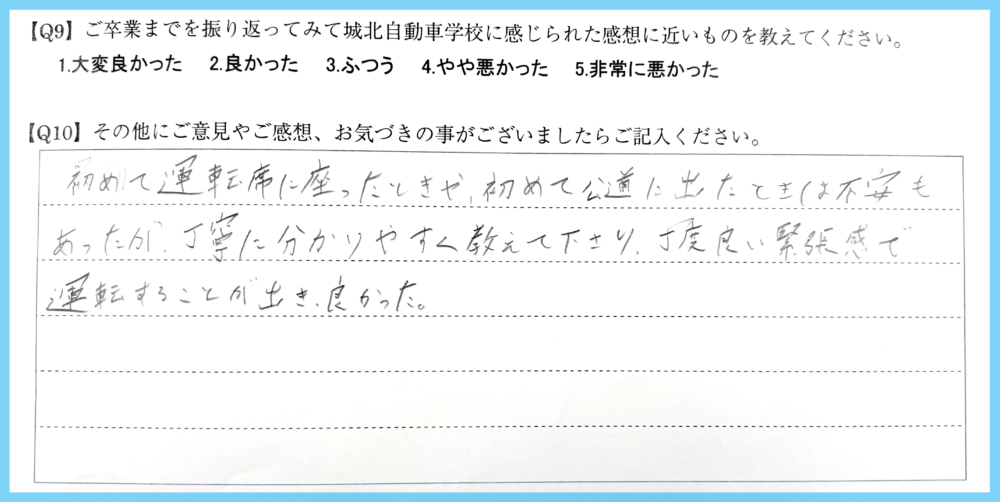 【Q9】ご卒業までを振り返ってみて城北自動車学校に感じられた感想に近いものを教えてください。
1.大変良かった 2.良かった 3.ふつう 4.やや悪かった 5.非常に悪かった
【Q10】その他にご意見やご感想、お気づきの事がございましたらご記入ください。
初めて運転席に座ったときや、初めて公道に出たときは不安も
あったが、丁寧に分かりやすく教えて下さり、丁度良い緊張感で
運転することが出き、良かった。